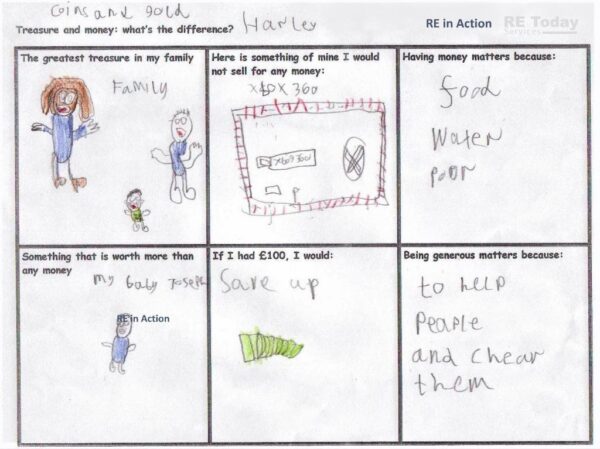 Coins and gold
Treasure and money: what's the difference? Harley
RE in Action
RE Today
Services
The greatest treasure in my family
FAMILY
Here is something of mine I would
not sell for any money:
XBOX 360
Xbox 360
Having money matters because:
food
Water
poor
Something that is worth more than
any money
my baby Joseph
RE in Action
If I had £100, I would:
Save up
Being generous matters because:
to help
Pearle
and chear
them